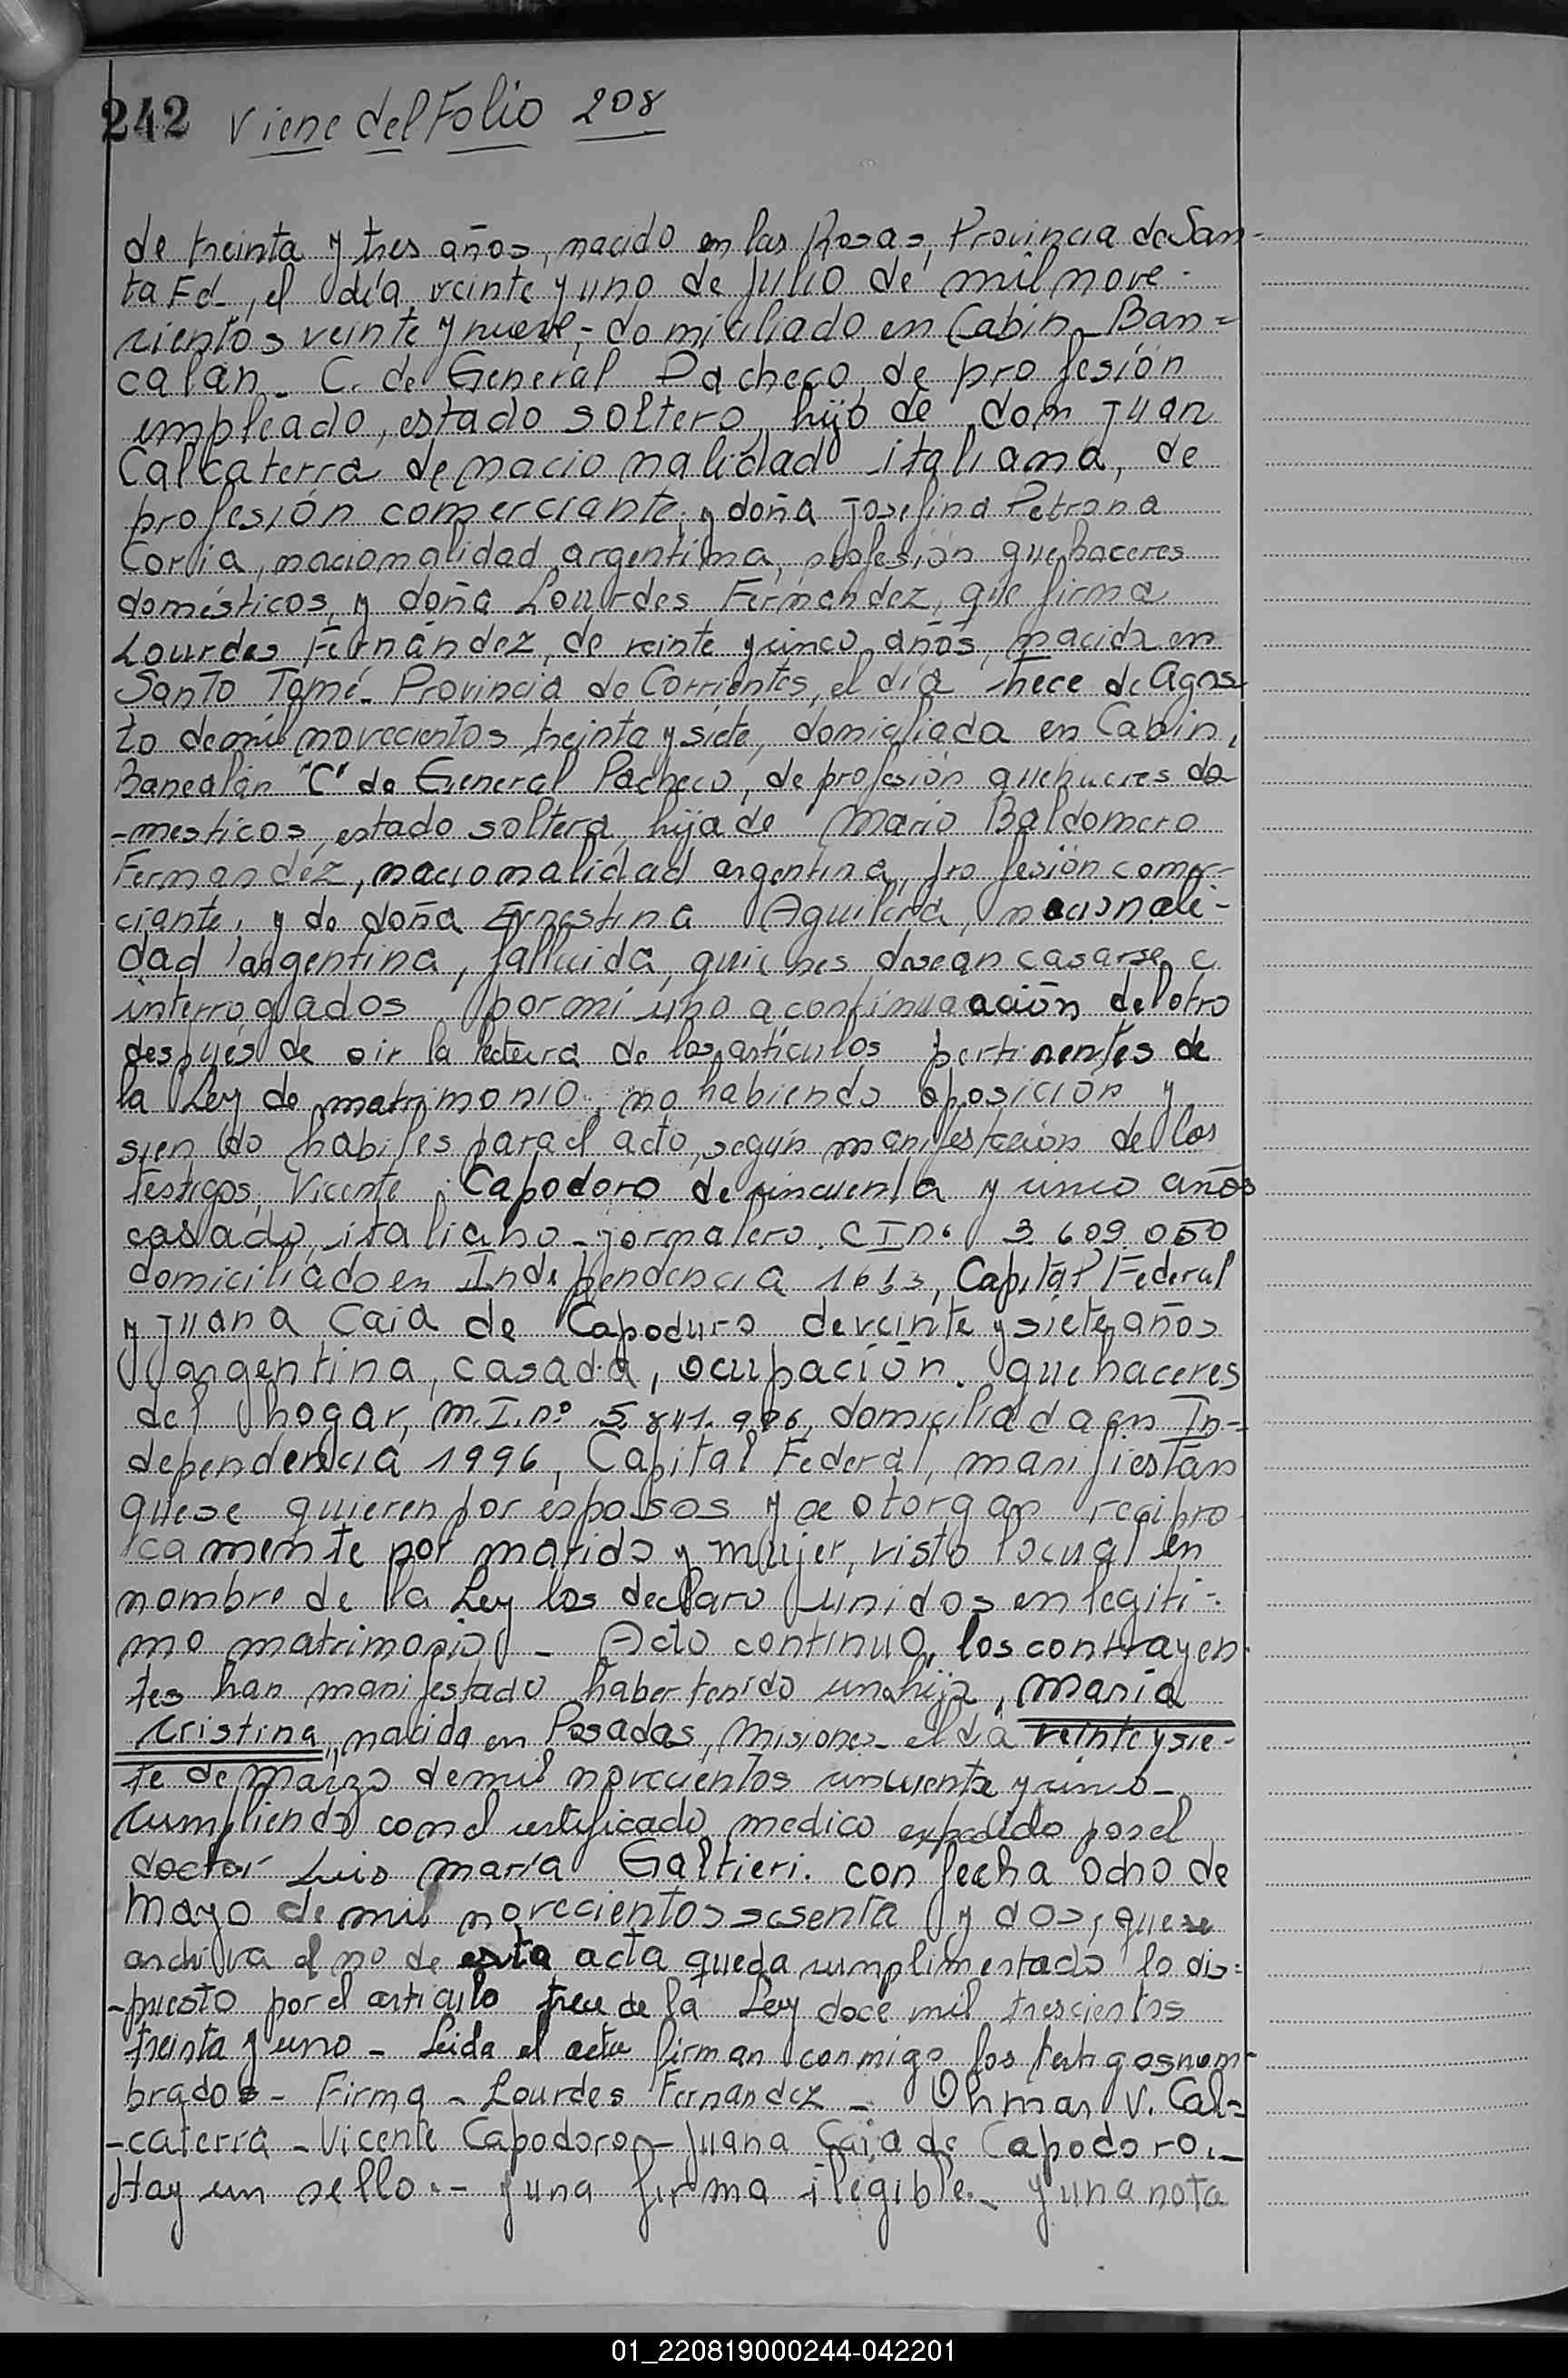 242 Viene del Folio 208
de treinta y tres años, nacido en las Rosas, Provincia de San-
ta Fd-, el día veinte y uno de Julio de mil nove-
cientos veinte y nueve,- domiciliado en Cabin Ban=
calan- C. de General Pacheco, de profesión
empleado, estado soltero, hijo de don Juan
Calcaterra de nacionalidad italiana, de
profesión comerciante, y doña Josefina Petrona
Coria, nacionalidad argentina, profesión quehaceres
domésticos, y doña Lourdes Fernandez, que firma
Lourdes Fernández, de veinte y cinco años, nacida en
Santo Tomé- Provincia de Corrientes, el día trece de Agos-
to de mil novecientos treinta y siete, domiciliada en Cabin,
Banealán "C" de General Pacheco, de profesión quehaceres do
-mesticos, estado soltera, hija de Mario Baldomero
Fernandez, nacionalidad argentina, profesión comer-
ciante, y de doña Ernestina Aguilera, nacionali-
dad argentina, fallecida, quienes desean casarse e
interrogados por mí uno a continuación del otro
después de oir la lectura de los artículos pertinentes de
la Ley de matrimonio, no habiendo oposición y
siendo habiles para el acto, según manifestación de los
testigos, Vicente Capodoro de cincuenta y cinco años
casado, italiano-jornalero. C I nº 3.609.050
domiciliado en Independencia Capital Federal
y Juana Caia de Capoduro de veinte y siete años
argentina, casada, ocupación. quehaceres
del hogar, m.I.nº 5.841.996, domiciliada en In-
dependencia 1996, Capital Federal, manifiestan
que se quieren por esposos y se otorgan recipro
camente por marido y mujer, visto lo cual en
nombre de la Ley los declaro unidos en legiti-
mo matrimonio- Acto continuo, los contrayen-
tes han manifestado haber tenido una hija, María
Cristina, nacida en Posadas, Misiones- el día veinte y sie-
te de Marzo de mil novecientos cincuenta y cinco-
Cumpliendo con el certificado medico expedido por el
doctor Luis María Galtieri. con fecha ocho de
Mayo de mil novecientos sesenta y dos, que se
archiva al no de esta acta queda cumplimentado lo dis=
-puesto por el articulo trece de la Ley doce mil trescientos
treinta y uno- Leida el acta firman conmigo los testigos nom-
brados- Firma- Lourdes Fernandez- Ohmar V. Cal=
-caterra-Vicente Capodoro-Juana Caia de Capodoro.-
Hay un sello.- y una firma ilegible.- y una nota
01_220819000244-042201